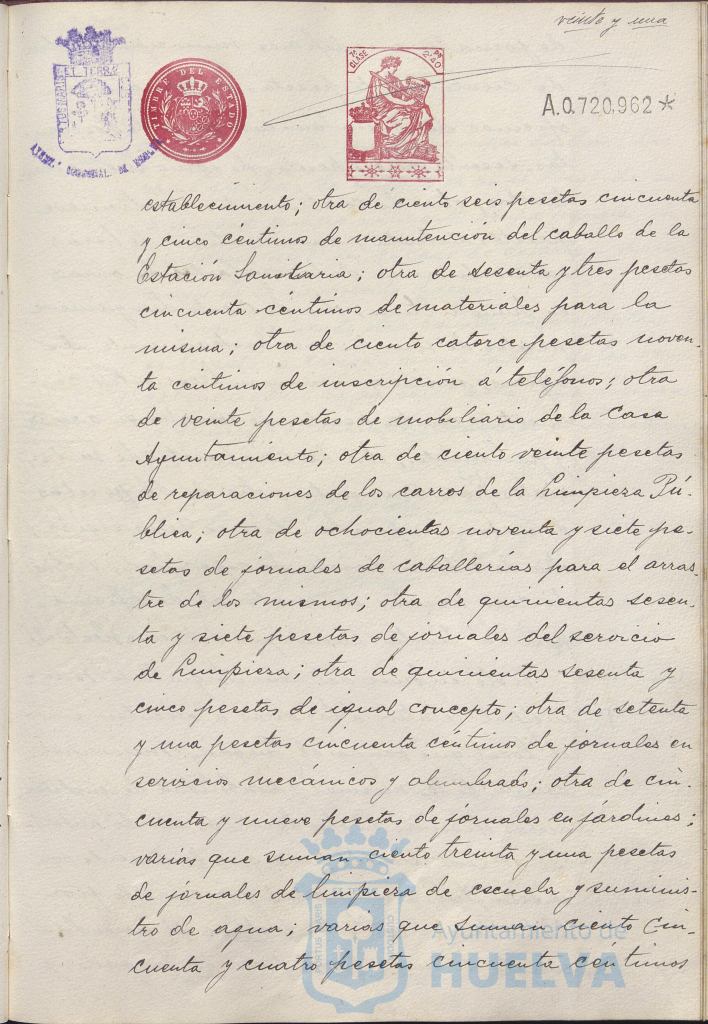 veinte y una
TIMBRE DEL ESTADO
7ª CLASE
A.0.720,962*
establecimiento; otra de ciento seis pesetas cincuenta
y cinco céntimos de manutención del caballo de la
Estación Sanitaria; otra de sesenta y tres pesetas
cincuenta céntimos de materiales para la
misma; otra de ciento catorce pesetas noven-
ta céntimos de inscripción á teléfonos; otra
de veinte pesetas de mobiliario de la Casa
Ayuntamiento; otra de ciento veinte pesetas
de reparaciones de los carros de la Limpieza Pú-
blica; otra de ochocientas noventa y siete pe-
setas de jornales de caballerías para el arras-
tre de los mismos; otra de quinientas sesen-
ta y siete pesetas de jornales del servicio
de Limpieza; otra de quinientas sesenta y
cinco pesetas de igual concepto; otra de setenta
y una pesetas cincuenta céntimos de jornales en
servicios mecánicos y alumbrado; otra de cin-
cuenta y nueve pesetas de jornales en jardines;
varias que suman ciento treinta y una pesetas
de jornales de limpieza de escuela y suminis-
tro de agua; varias que suman ciento cin-
cuenta y cuatro pesetas cincuenta céntimos
Ayuntamiento de
HUELVA